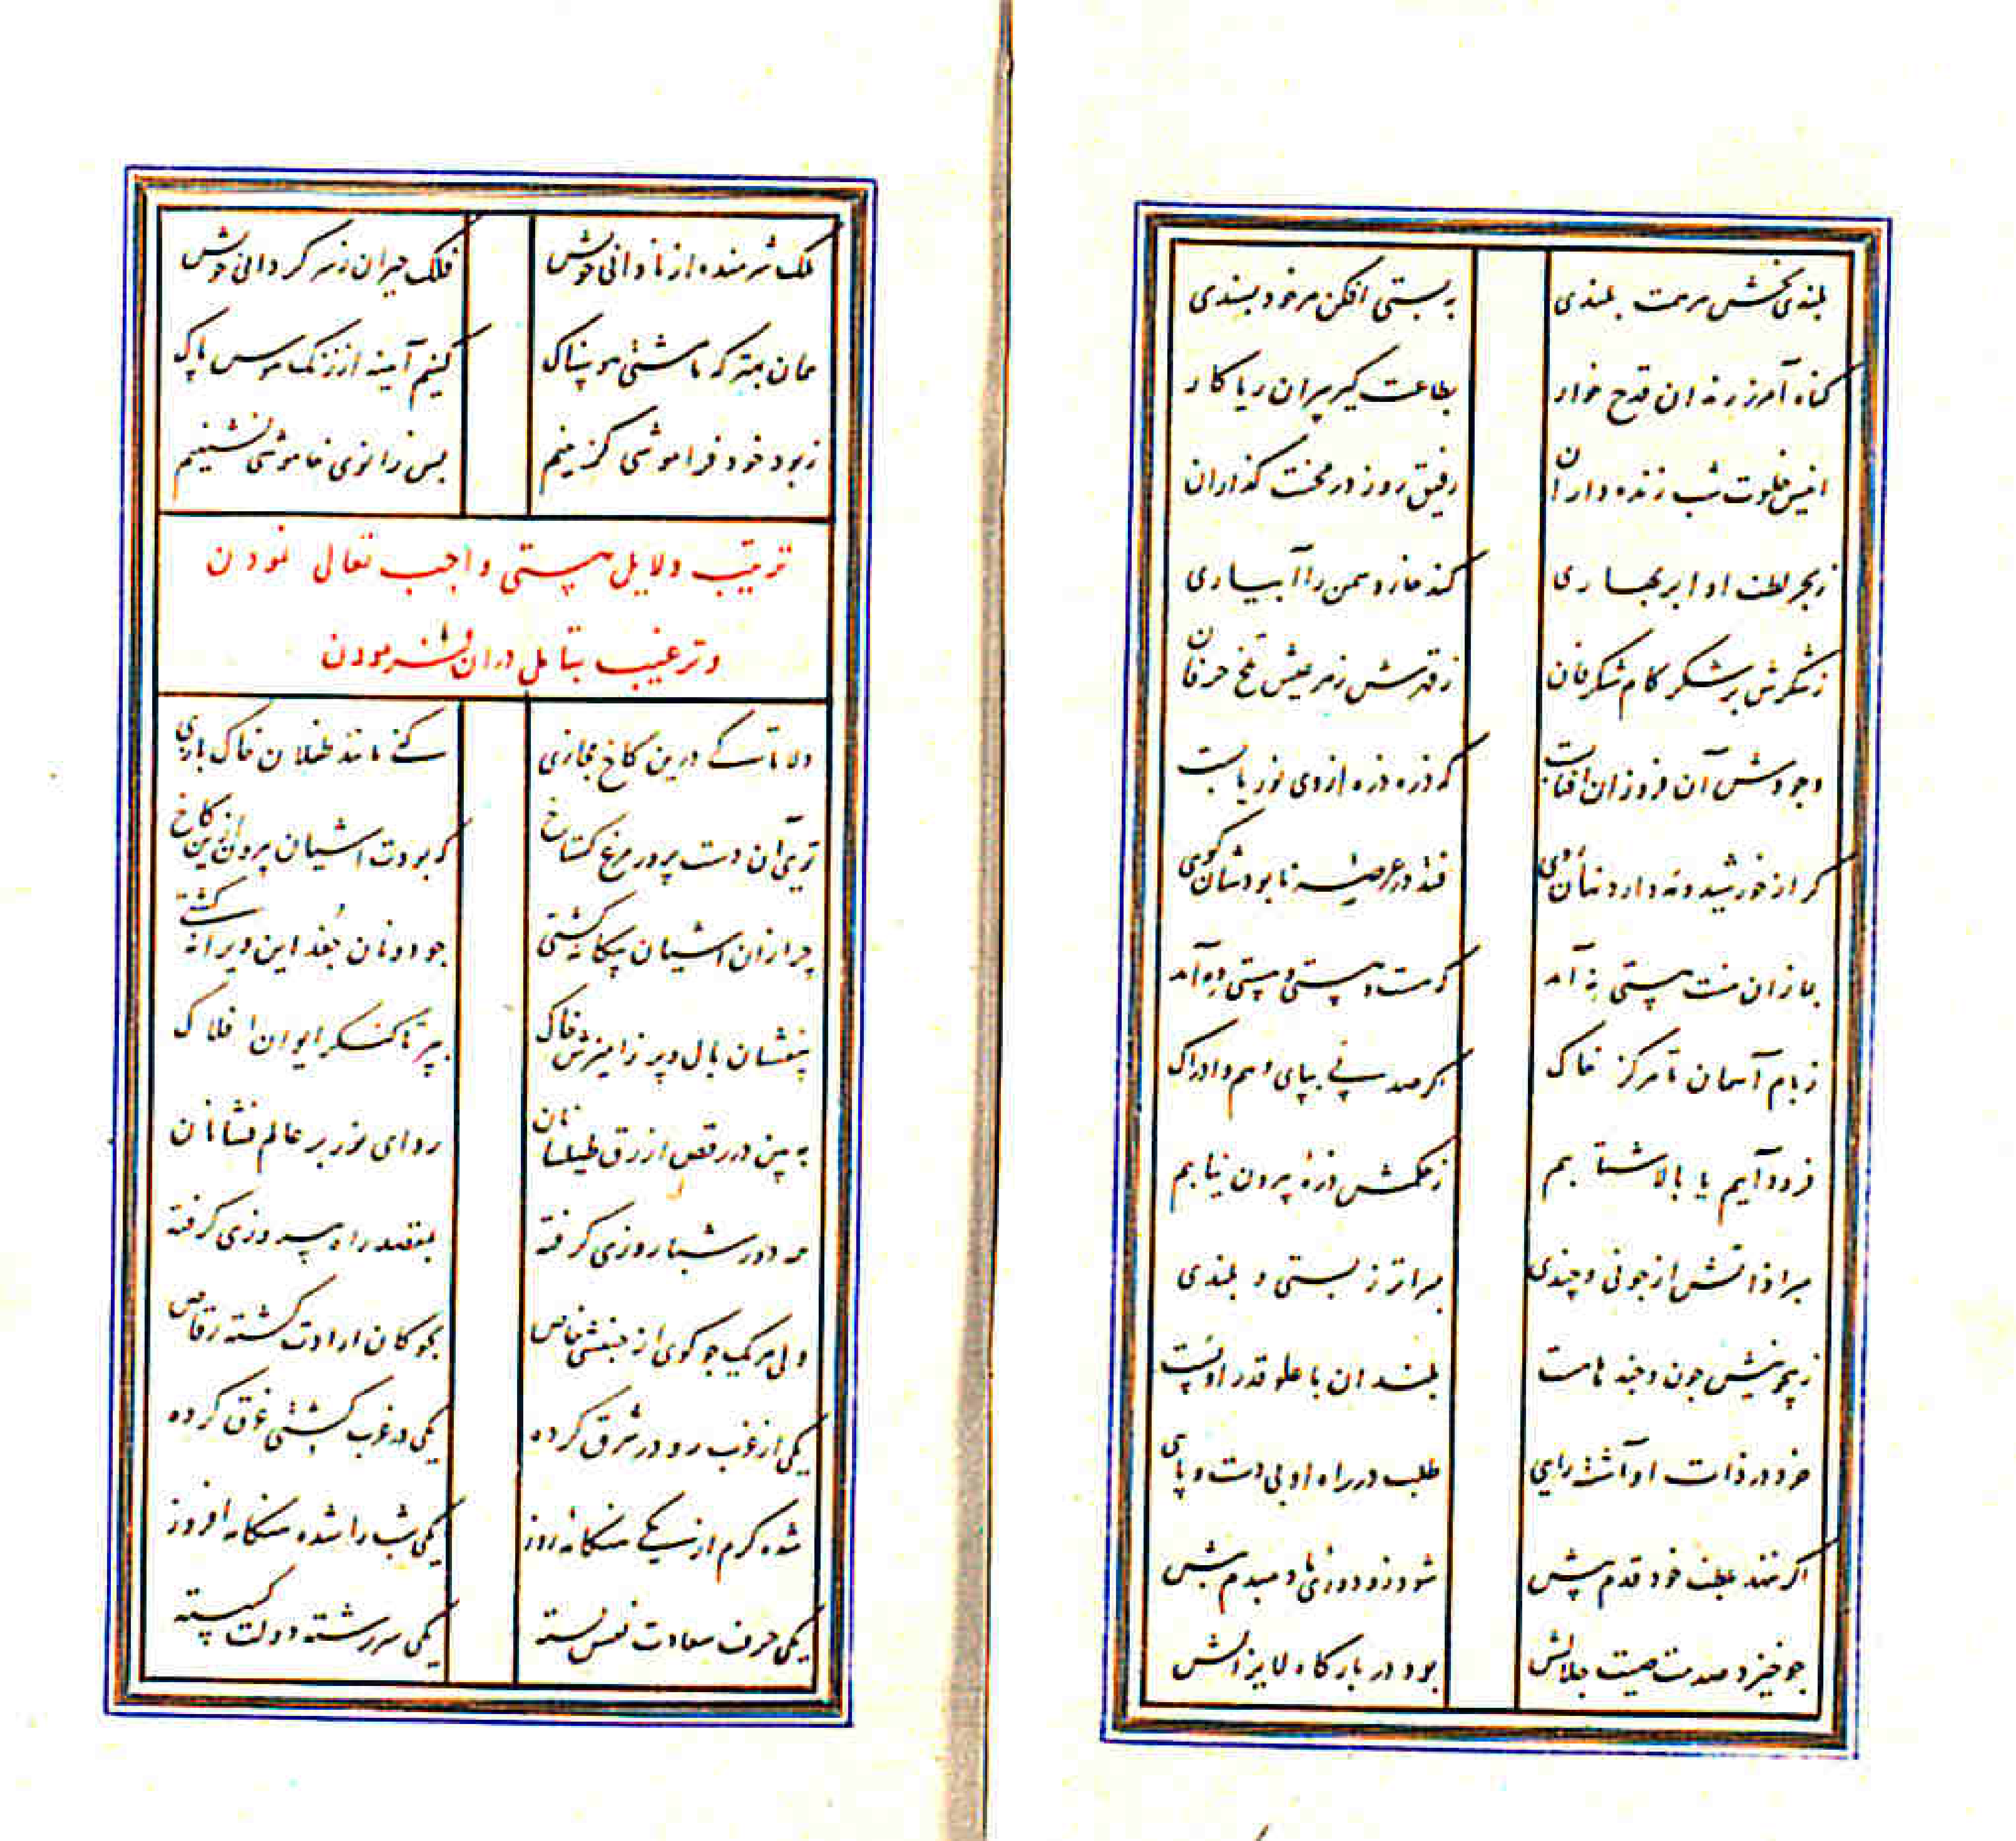 بلندی بخش هر همت بلندی به پستی افکن هر خود پسندی
کناه آمرز رندان قدح خوار بطاعت کیر پیران ریا کار
انیس خلوت شب زنده داران رفیق روز در محنت کذاران
زبحر لطف او ابر بهاری کند خار و سمن را آبیاری
زشکرش پر شکر کام شکرفان زقهرش زهر عیش تلخ حرفان
وجودش آن فروزان آفتابست که ذره ذره از وی نور یابست
کر از خورشید و مه دارد نهان روی فتد در عرصه نابودشان کوی
بما زان منت هستی نه آمد که هست و هستی و هستی ده آمد
زبام آسمان تا مرکز خاک اکر صد پی بپای وهم و ادراک
فرود آییم یا بالا شتابیم زحکمش ذرهٔ بیرون نیابیم
مبرا ذاتش از جونی و چندی مبراتر ز پستی و بلندی
زبیچونیش جون و چند هست بلندان با علو قدر او پست
خرد در ذات او آشفته رایی طلب در راه او بی دست و پایی
اکر ننهد بلطف خود قدم پیش شود زو دوری ما دمبدم بیش
جو خیزد صدمت صیت جلالش بود در بارکاه لایزالش
ملک شرمنده از نادانی خویش فلک حیران زسر کردانی خویش
همان بهتر که ما مشتی هوسناک کنیم آیینه از زنک هوس پاک
زبود خود فراموشی کزینیم پس زانوی خاموشی نشینیم
ترتیب دلایل هستی واجب تعالی نمودن
و ترغیب بتامل دران فرمودن
دلا تا کے درین کاخ مجازی کنے مانند طفلان خاک بازی
تویی آن دست پرور مرغ کستاخ که بودت آشیان بیرون ازین کاخ
چرا زان آشیان بیکانه کشتی جو دونان جغد این ویرانه کشتے
بیفشان بال و پر زآمیزش خاک بپر تا کنکر ایوان افلاک
به بین در رقص ازرق طیلسانان ردای نور بر عالم فشانان
همه دور شباروزی کرفته بمقصد راه پیروزی کرفته
ولی هر یک جو کوی از جنبشی خاص بچوکان ارادت کشته رقاص
یکی از غرب رو در شرق کرده یکی در غرب کشتی غرق کرده
شده کرم از یکے هنکامهٔ روز یکی شب را شده هنکامه افروز
یکی حرف سعادت نقش بسته یکی سر رشته دولت کسسته